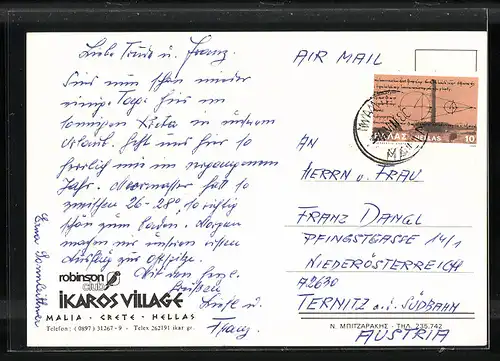 Liebe Trude u. Franz.
Sind nun schon wieder
einige Tage hier im
sonnigen Kreta in unserem
Urlaub. Geht uns hier so
herrlich wie im vergangenem
Jahr. Meerwasser hat so
zwischen 26-28° so richtig
schön zum baden. Morgen
machen wir unseren ersten
Ausflug zur Ostspitze.
Mit den herzl.
Grüssen
u.
Franz.
Erna
robinson
club
IKAROS VILLAGE
MALIA · CRETE · HELLAS
Telefon: (0897) 31267-9 - Telex 262191 ikar gr.
AIR MAIL
ΕΛΛΑΣ HELLAS 10
AN
HERRN u. FRAU
FRANZ DANGL
PFINGSTGASSE 14/1
NIEDERÖSTERREICH
A2630
TERNITZ a.d. SÜDBAHN
AUSTRIA
Ν. ΜΠΙΤΖΑΡΑΚΗΣ - ΤΗΛ. 235.742